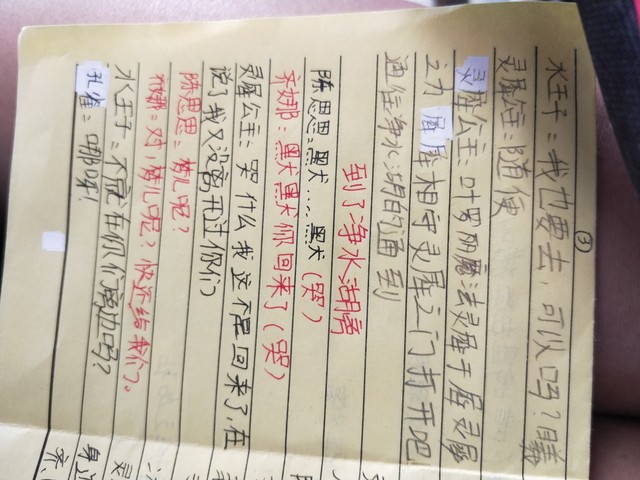 ③
水王子：我也要去，可以吗？曦
灵犀公主：随便
灵犀公主：叶罗丽魔法灵犀于犀灵犀
之力 犀犀相守灵犀之门打开吧！
通往净水湖的通到
到了净水湖旁
陈思思：黑犬…黑犬（哭）
齐娜：黑犬黑犬你回来了（哭）
灵犀公主：哭什么我这不是回来了，在
说了我又没离开过你们
陈思思：梦儿呢？
齐娜：对，梦儿呢？快还给我们。
水王子：不就在你们旁边吗？
孔雀：哪呀！
身边
齐
灵